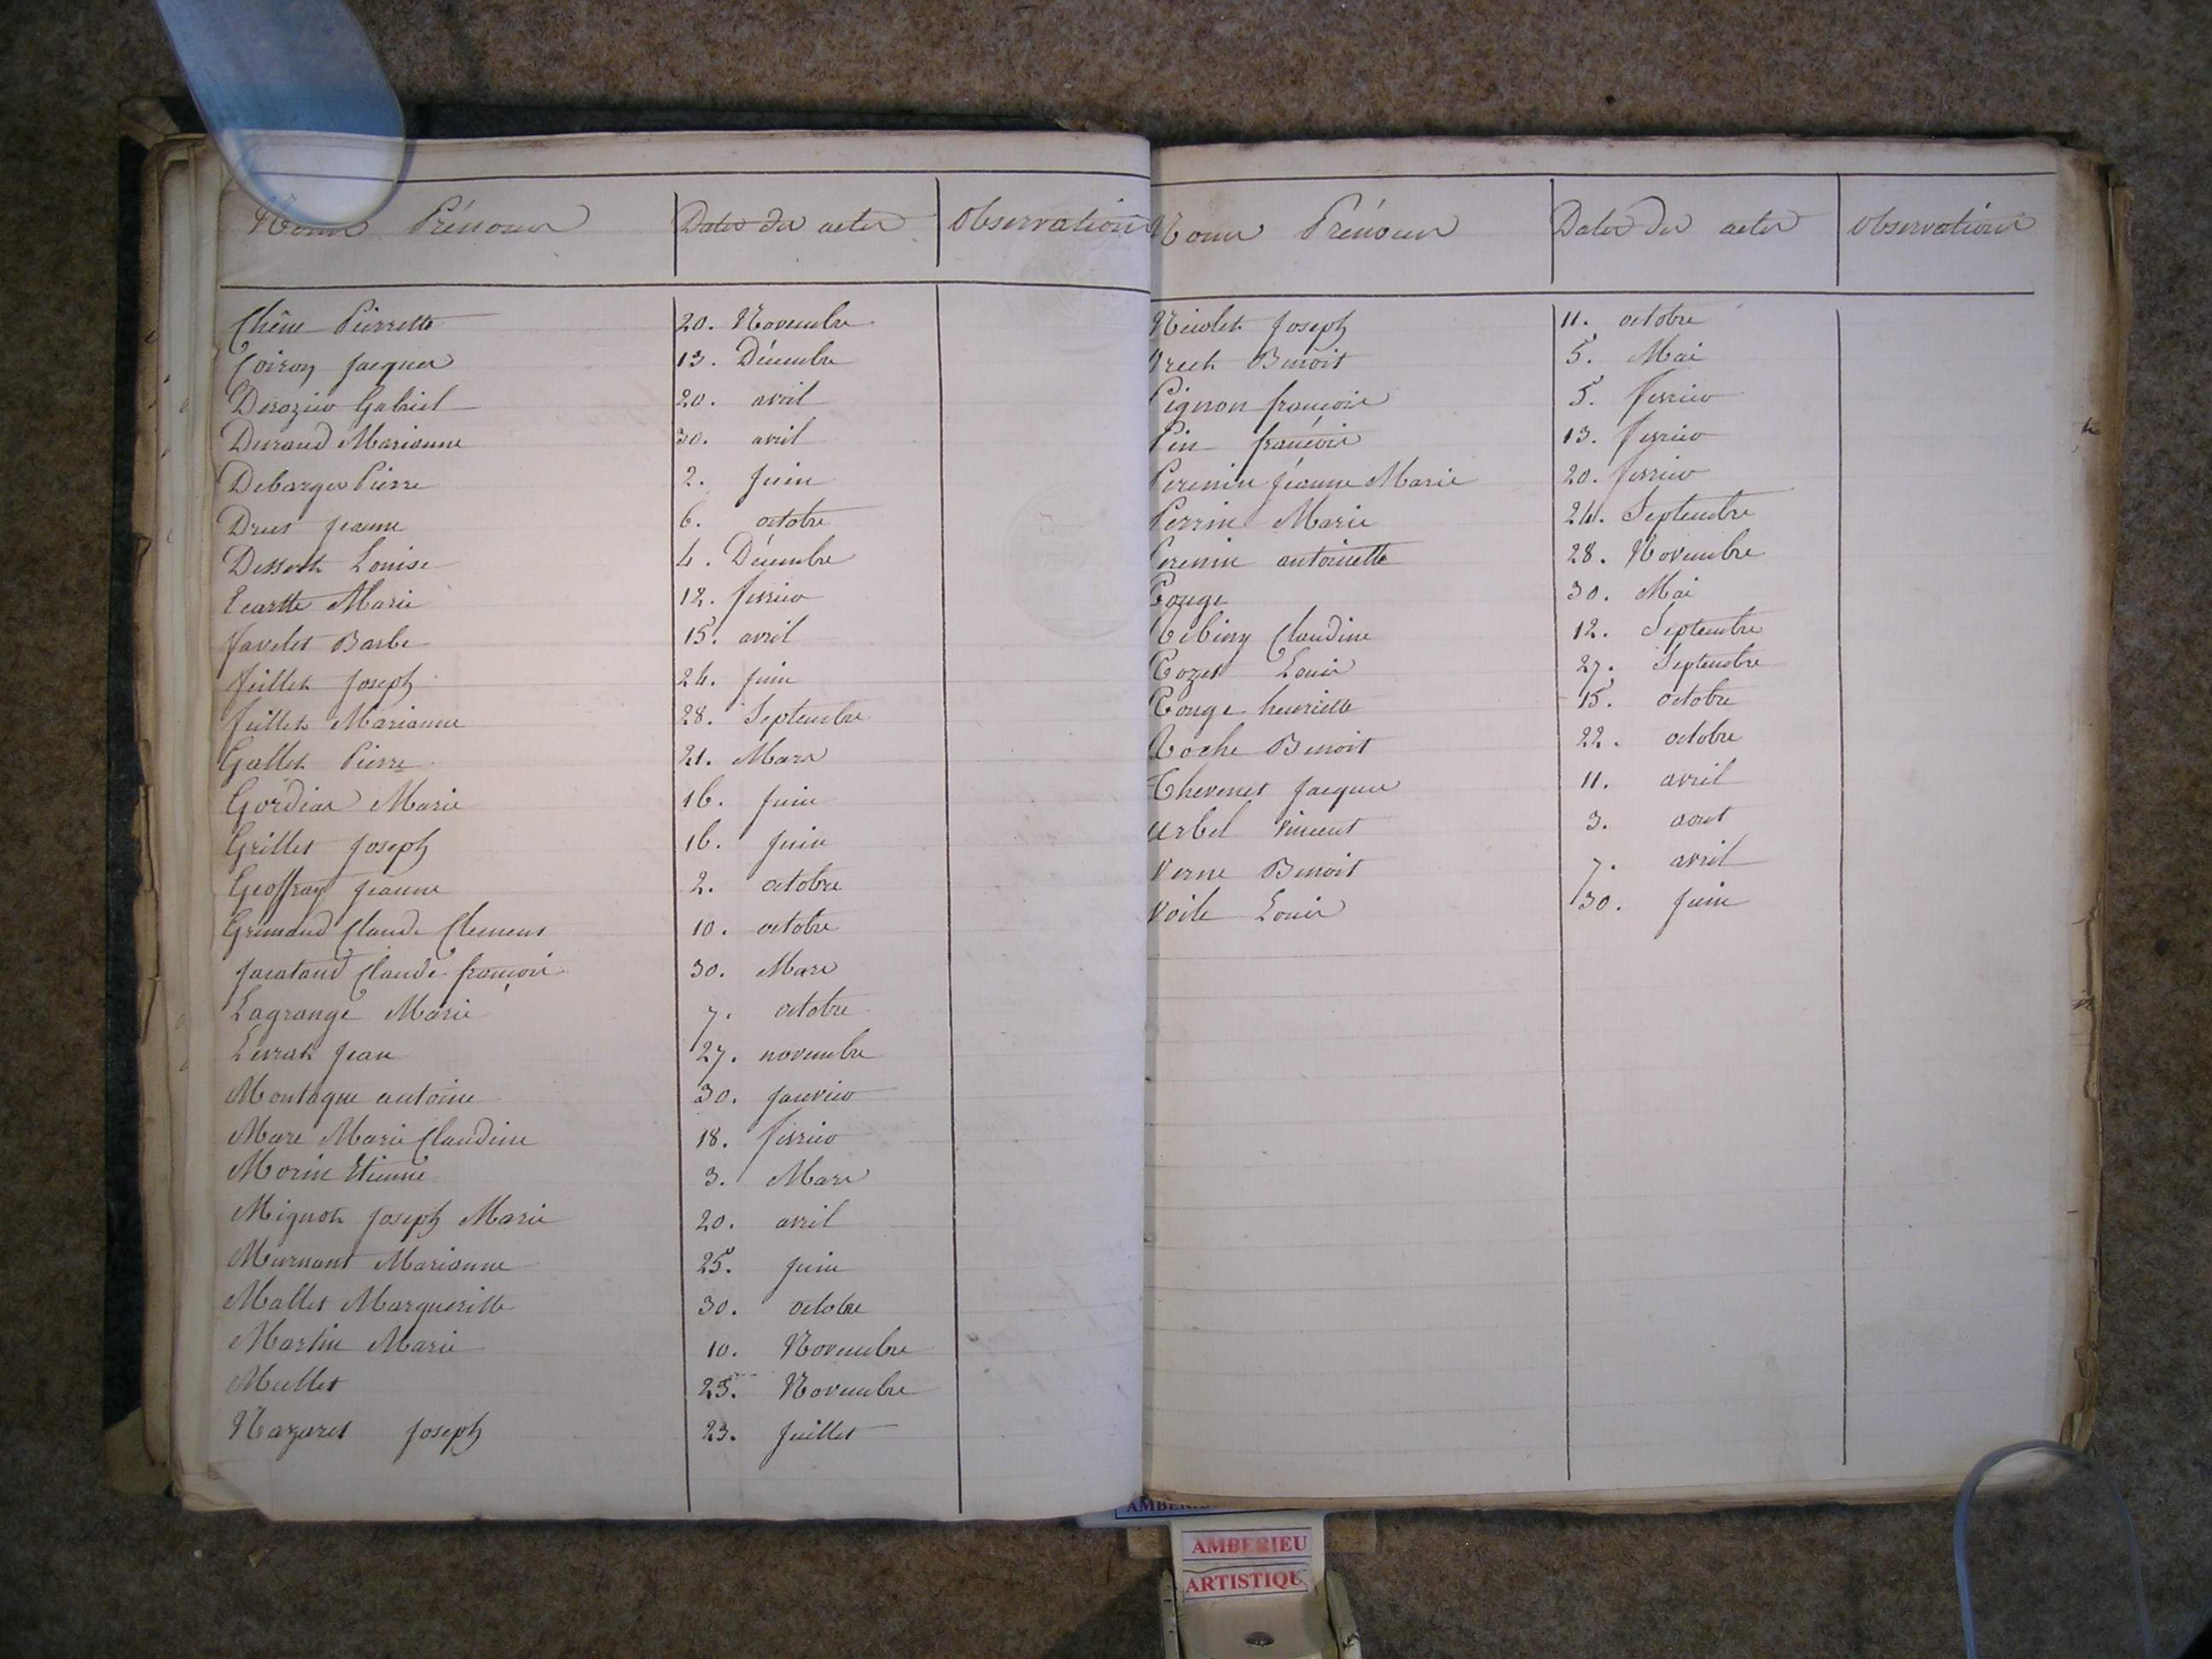 Noms Prénoms Dates des actes Observations
Chêne Pierrette 20. Novembre
Coiron Jacques 13. Décembre
Derozier Gabriel 20. avril
Durand Marianne 30. avril
Debarges Pierre 2. Juin
Drut Jeanne 6. octobre
Desserth Louise 4. Décembre
Ecartte Marie 12. fevrier
Favelet Barbe 15. avril
Feillet Joseph 24. Juin
Feillet Marianne 28. Septembre
Gallet Pierre 21. Mars
Gordiat Marie 16. Juin
Grillet Joseph 16. Juin
Geoffray Jeanne 2. octobre
Grimaud Claude Clement 10. octobre
Jacataud Claude françois 30. Mars
Lagrange Marie 7. octobre
Levrat Jean 27. novembre
Montagne antoine 30. Janvier
Mare Marie Claudine 18. fevrier
Morin Etienne 3. Mars
Mignot Joseph Marie 20. avril
Murnant Marianne 25. Juin
Mallet Margueritte 30. octobre
Martin Marie 10. Novembre
Mullet 23. Novembre
Nazaret Joseph 23. Juillet
Noms Prénoms Dates des actes Observations
Nicolet Joseph 11. octobre
Benoit 5. Mai
Pignon françois 5. fevrier
Pin françois 13. fevrier
Perenin Jeanne Marie 20. fevrier
Perrin Marie 24. Septembre
Perenin antoinette 28. Novembre
Rouge 30. Mai
Ribiny Claudine 12. Septembre
Rozet Louis 27. Septembre
Rouge henriette 15. octobre
Roche Benoit 22. octobre
Thevenet Jacques 11. avril
Urbel Vincent 3. aout
Verne Benoit 7. avril
Voile Louis 30. Juin
AMBERIEU
ARTISTIQU